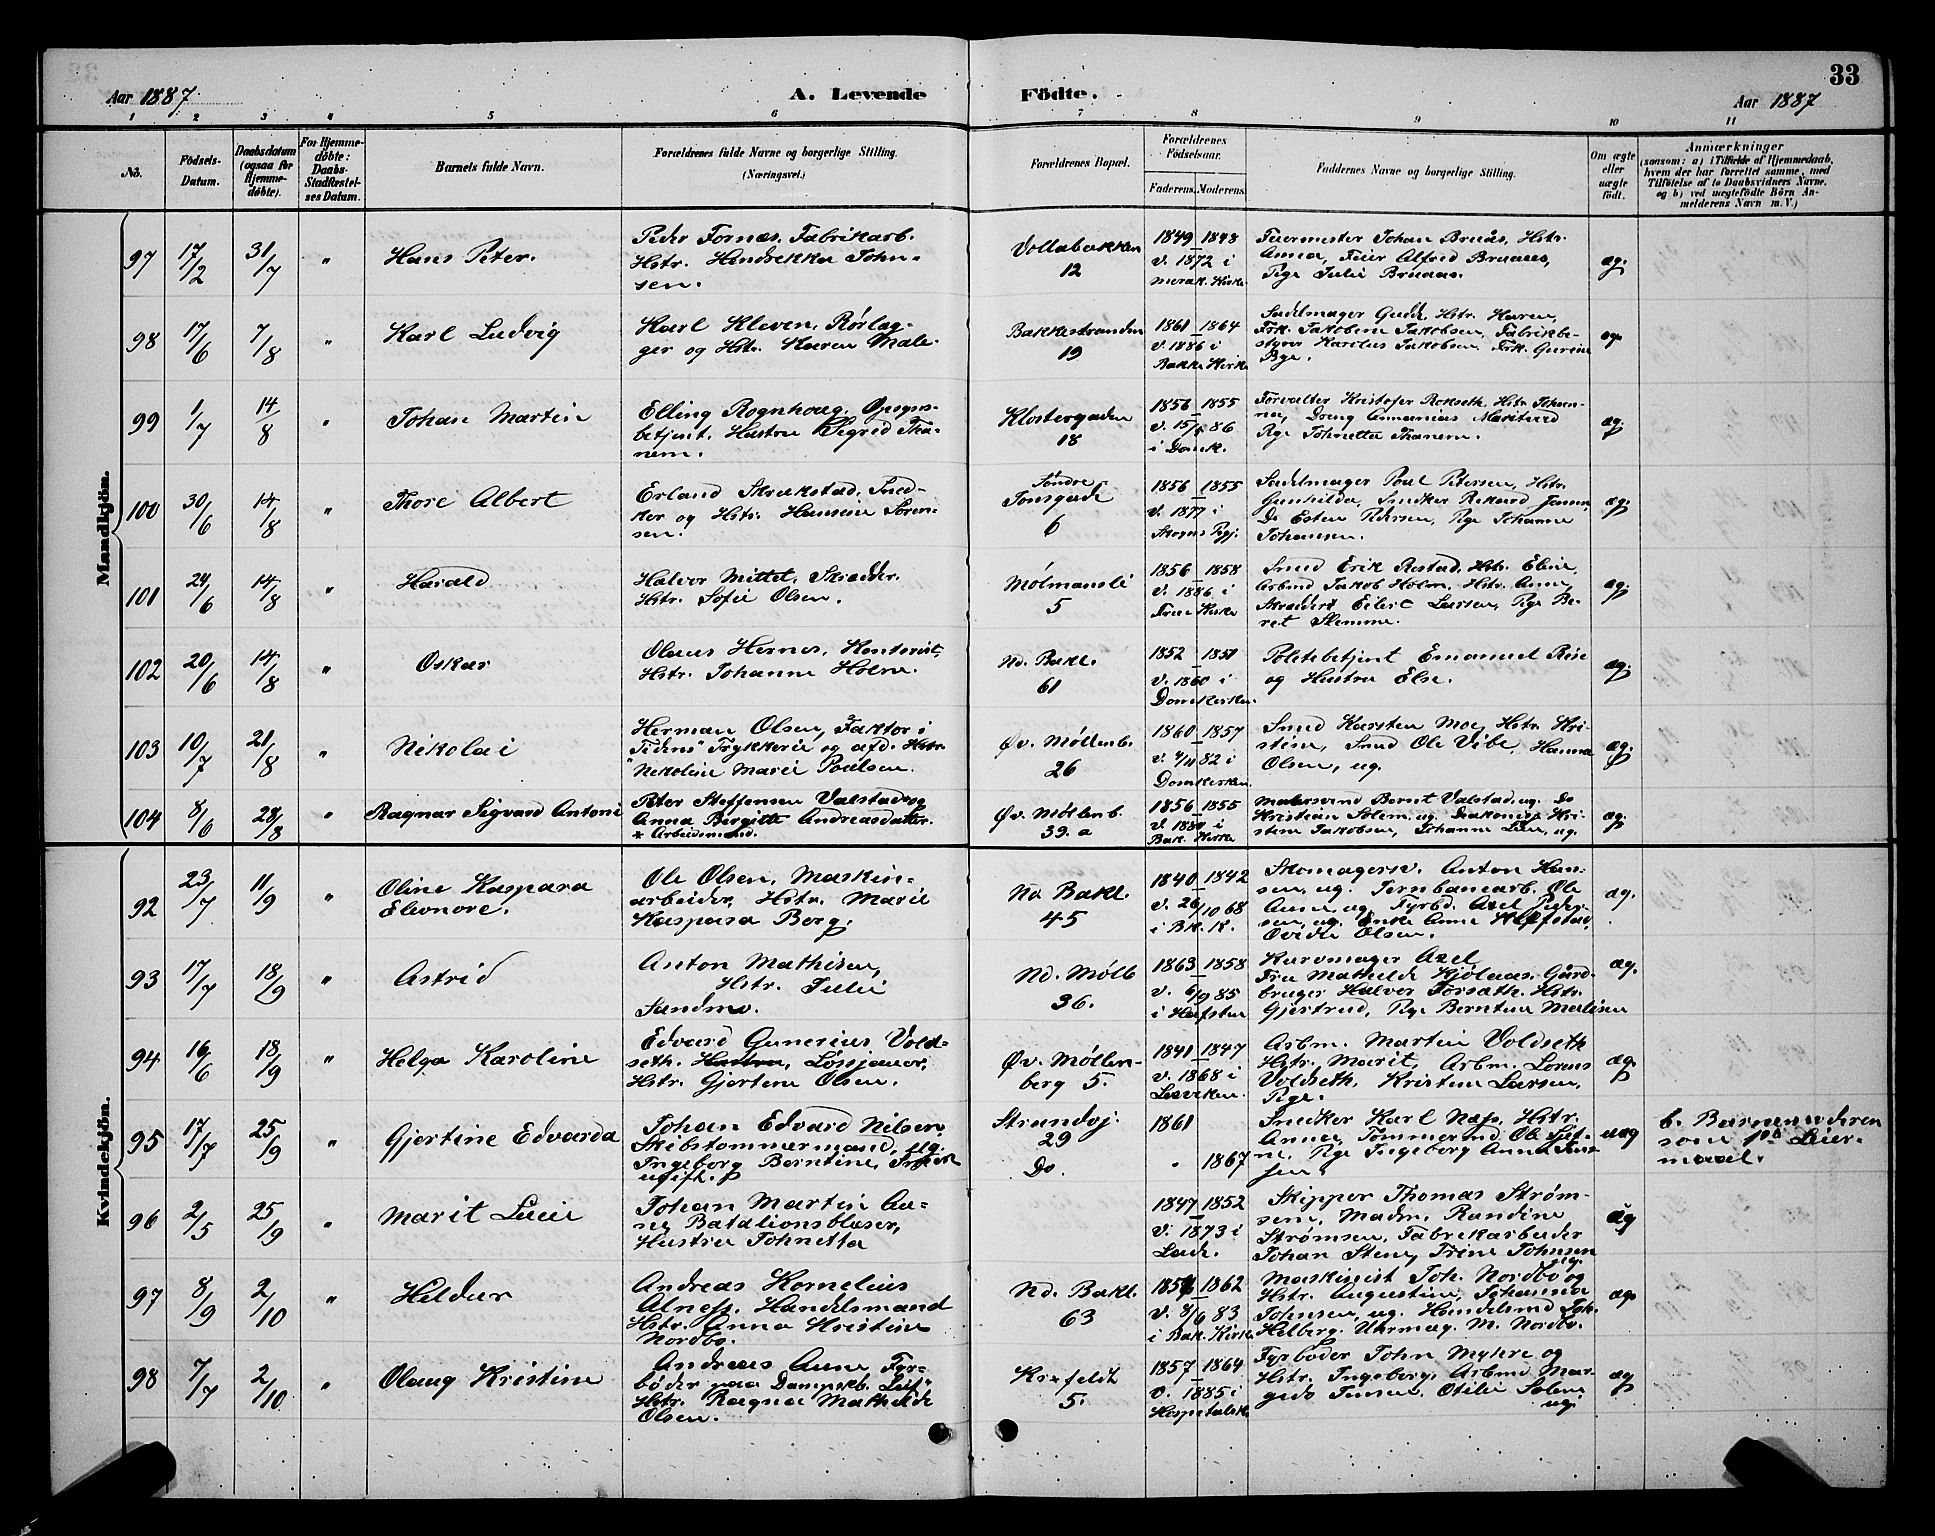 Aar 1887
A. Levende Födte.
Aar 1887
33
1 2 3 4 5 6 7 8 9 10 11
No.
Födsels-Datum.
Daabsdatum (ogsaa for Hjemmedøbte).
For Hjemmedøbte: Daabs-Stadfæstelses Datum.
Barnets fulde Navn.
Forældrenes fulde Navne og borgerlige Stilling. (Næringsvei.)
Forældrenes Bopæl.
Forældrenes Fødselsaar.
Faderens. Moderens.
Faddernes Navne og borgerlige Stilling.
Om ægte eller uægte født.
Anmærkninger
(saasom: a) i Tilfælde af Hjemmedaab, hvem der har forrettet samme, med Tilføielse af to Daabsvidners Navne, og b) ved uægtefødte Börn Anmelderens Navn m. V.)
Mandkjön.
97 17/2 31/7 " Hans Peter.
Peder Fornæs, Fabrikarb.
Hstr. Hendrikka Johnsen.
Vollabakken 12
1849 1848
v. 1872 i
Feiermester Johan Bruås, Hstr.
Anna, Feier Alfred Bruaas,
Pige Julie Bruaas.
æg.
98 17/6 7/8 " Karl Ludvig
Karl Kleven, Rørlæg-
ger og Hstr. Karen Male
Bakkestranden 19
1861 1864
v. 1886 i
Bakke Kirke
Sadelmager Gudde, Hstr. Karen,
Frk. Jakobine Jakobsen, Fabrikbe-
styrer Karelius Jakobsen, Frk. Gurine
Bye.
æg.
99 1/7 14/8 " Johan Martin
Elling Rognhaug, Opsyns-
betjent, Hustru Sigrid Tha-
nem.
Klostergaden 18
1856 1855
i Domk.
Forvalter Kristofer Rokseth, Hstr. Johan-
na, Dreng Annanias
Pige Johnetta Thanem.
æg.
100 30/6 14/8 " Thore Albert
Erland Skrukstad, Sned-
ker og Hstr. Hansine Soren-
sen.
Søndre Tomsgade 6
1856 1855
v. 1877 i
Sadelmager Poul Petersen, Hstr.
Gunhilda, Snedker Rikard
Do Esten Pedersen, Pige Johanna
Johansen.
æg
101 24/6 14/8 " Harald
Halvor Mittet, Skrædder.
Hstr. Sofie Olsen.
Mølmansli 5
1856 1858
v. 1886 i
Frue Kirke
Smed Erik Restad, Hstr. Eline,
Arbmd Jakob Holm, Hstr. Anne,
Skrædder Eilert Larsen, Pige Be-
ret Slemme.
æg.
102 20/6 14/8 " Oskar
Olaus Hernes, Kontorist,
Hstr. Johanna Holm.
Nd. Bakl. 61
1852 1851
v. 1880 i
Domkirken.
Politibetjent Emanuel Rise
og Hustru Else.
æg.
103 10/7 21/8 " Nikolai
Herman Olsen, Faktor i
"Tidens" Trykkeri og afd. Hstr.
Nikoline Marie Poulsen.
Øv. Møllenb. 26
1860 1857
v. 4/11 82 i
Domkirken
Smed Karsten Moe, Hstr. Kri-
stine, Smed Ole Vibe, Hanna
Olsen, ug.
æg.
104 8/6 28/8 " Ragnar Sigvard Antoni
Peter Steffensen Valstad og
Anna Bergitte Andreasdatter.
* Arbeidsmand.
Øv. Møllenb. 39. a
1856 1855
v. 1880 i
Bak. Kirke
Malersvend Bernt Valstad, ug. Do
Kristian Solem, ug. Diakonisse Kri-
stine Jakobsen, Johanne Lien, ug.
æg.
Kvindekjön.
92 23/7 11/9 " Oline Kaspara
Eleonore.
Ole Olsen, Maskin-
arbeider, Hstr. Marie
Kaspara Berg.
Nd Bakl. 45
1840 1842
v. 26/10 68
i Bk. K.
Skomagersv. Anton Han-
sen, ug. Jernbanearb. Ole
Aune, ug. Fyrbd. Axel Peder-
sen, ug. Enke Anne
Ovidie Olsen.
æg.
93 17/7 18/9 " Astrid
Anton Mathisen,
Hstr. Julie
Sandmo.
Nd. Mølb 36.
1863 1858
v. 6/9 85
Kurvmager Axel
Fru Mathilde Kjölaas, Gård-
bruger Halvor Forsæth, Hstr.
Gjertrud, Pige Berntine
æg.
94 16/6 18/9 " Helga Karoline
Edvard Gunerius Vold-
seth. Hustru, Løsjauer,
Hstr. Gjertine Olsen.
Øv. Møllen-
berg 5.
1841 1847
v. 1868 i
Arbm. Martin Voldseth
Hstr. Marit, Arbm. Lorens
Voldseth, Kristine Larsen,
Pige.
æg
95 17/7 25/9 " Gjertine Edvarda
Johan Edvard Nilsen,
Skibstømmermand, ug.
Ingeborg Berntine
ugift.
Strandvj. 29
Do.
1861
" 1867
Snedker Karl Næss, Hstr.
Anna, Tømmermd Ole
Pige Ingeborg Anna
uæg
b. Barnemoderen
som 1ste Leier-
maal.
96 2/5 25/9 " Marit Luie
Johan Martin Au-
ne, Batalionsblæser,
Hustru Johnetta
1847 1852
v. 1873 i
Lade.
Skipper Thomas Strøm-
sen, Madm. Randine
Strømsen, Fabrikarbeider
Johan Stene, Trine Johnsen
ug.
æg
97 8/9 2/10 " Heldur
Andreas Kornelius
Alness, Handelsmand
Hstr. Anna Kristine
Nordbo.
Nd. Bakl. 63
1862
v. 3/6 83
i Bak. Kirke
Maskinist Joh. Nordbö og
Hstr. Augustine, Johanna
Johnsen, ug. Handelsmd Joh.
Helberg, Uhrmag. M. Nordbo.
æg.
98 7/7 2/10 " Olaug Kristine
Andreas Aune Fyr-
bøder paa Dampskb. "Leif"
Hstr. Ragna Mathilde
Olsen.
Krefeldt 5.
1857 1864
v. 1885 i
Hospitalsk
Fyrbøder John Myhre og
Hstr. Ingeborg, Arbmd Mar-
Jensen, Otilie Solem
ug.
æg